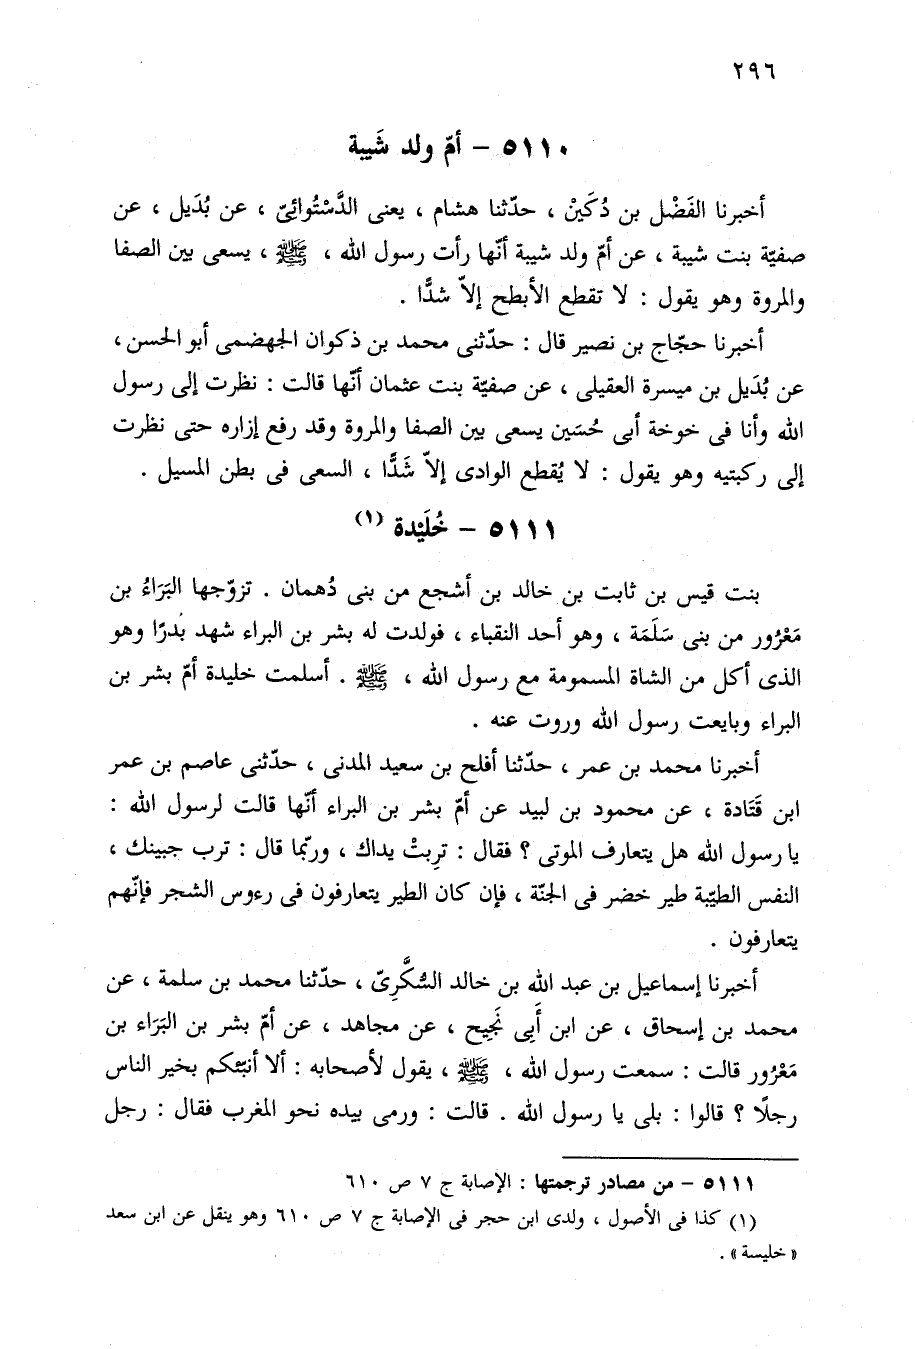 ٢٩٦
٥١١٠ – أمّ ولد شَيبة
أخبرنا الفَضْل بن دُكَينْ ، حدّثنا هشام ، يعنى الدَّسْتُوائِىّ ، عن بُدَيل ، عن
صفيّة بنت شيبة ، عن أمّ ولد شيبة أنّها رأت رسول الله ، ﷺ ، يسعى بين الصفا
والمروة وهو يقول : لا تقطع الأبطح إلاّ شدًّا .
أخبرنا حجّاج بن نصير قال : حدّثنى محمد بن ذكوان الجهضمى أبو الحسن ،
عن بُدَيل بن ميسرة العقيلى ، عن صفيّة بنت عثمان أنّها قالت : نظرت إلى رسول
الله وأنا فى خوخة أبى حُسَين يسعى بين الصفا والمروة وقد رفع إزاره حتى نظرت
إلى ركبتيه وهو يقول : لا يُقطع الوادى إلاّ شَدًّا ، السعى فى بطن المسيل .
٥١١١ – خُلَيْدة (١)
بنت قيس بن ثابت بن خالد بن أشجع من بنى دُهمان . تزوّجها البَرَاءُ بن
مَعْرُور من بنى سَلَمَة ، وهو أحد النقباء ، فولدت له بشر بن البراء شهد بدرًا وهو
الذى أكل من الشاة المسمومة مع رسول الله ، ﷺ . أسلمت خليدة أمّ بشر بن
البراء وبايعت رسول الله وروت عنه .
أخبرنا محمد بن عمر ، حدّثنا أفلح بن سعيد المدنى ، حدّثنى عاصم بن عمر
ابن قَتَادة ، عن محمود بن لبيد عن أمّ بشر بن البراء أنّها قالت لرسول الله :
يا رسول الله هل يتعارف الموتى ؟ فقال : تربتْ يداك ، وربّما قال : ترب جبينك ،
النفس الطيّبة طير خضر فى الجنّة ، فإن كان الطير يتعارفون فى رءوس الشجر فإنّهم
يتعارفون .
أخبرنا إسماعيل بن عبد الله بن خالد السُّكَّرِىّ ، حدّثنا محمد بن سلمة ، عن
محمد بن إسحاق ، عن ابن أَبِى نَجِيح ، عن مجاهد ، عن أمّ بشر بن البَرَاء بن
مَعْرُور قالت : سمعت رسول الله ، ﷺ ، يقول لأصحابه : ألا أنبّئكم بخير الناس
رجلًا ؟ قالوا : بلى يا رسول الله . قالت : ورمى بيده نحو المغرب فقال : رجل
٥١١١ – من مصادر ترجمتها : الإصابة ج ٧ ص ٦١٠
(١) كذا فى الأصول ، ولدى ابن حجر فى الإصابة ج ٧ ص ٦١٠ وهو ينقل عن ابن سعد
« خليسة » .